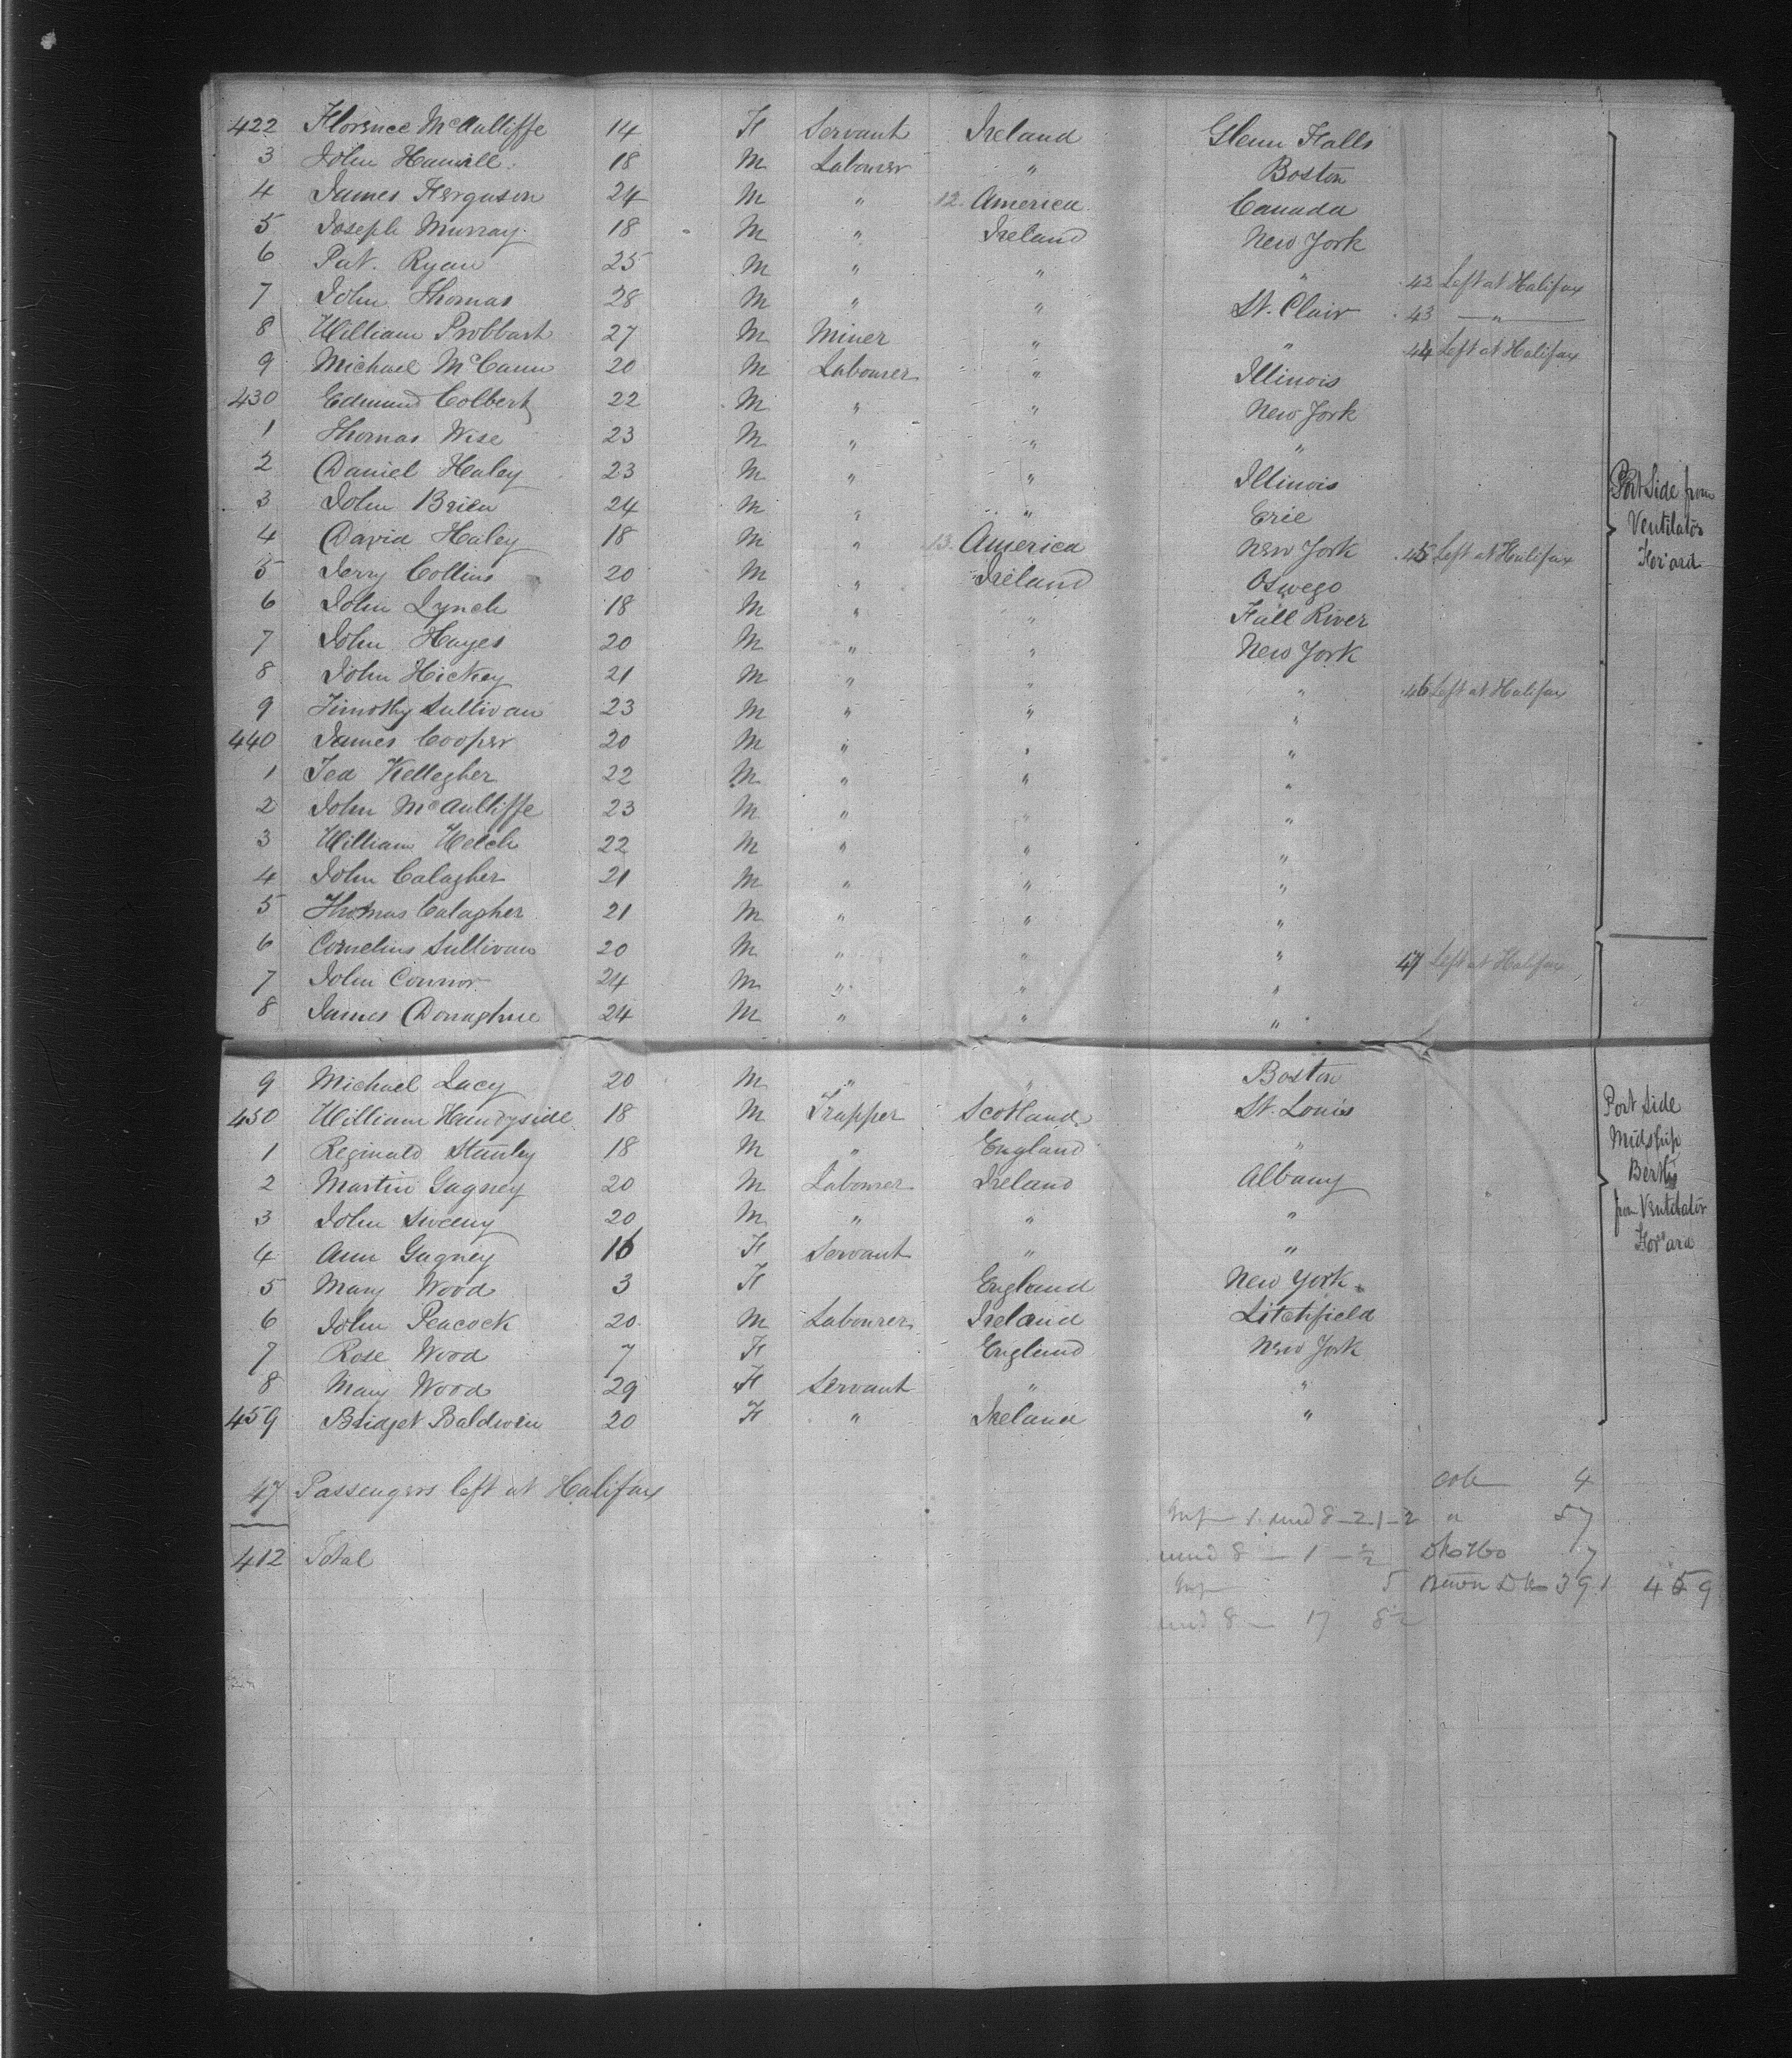 422 Florence McAulliffe 14 F Servant Ireland Glenn Falls
3 John Hamill 18 M Labourer " Boston
4 James Ferguson 24 M " 12. America Canada
5 Joseph Murray 18 M " Ireland New York
6 Pat. Ryan 25 M " " " 42 Left at Halifax
7 John Thomas 28 M " " St. Clair 43 — " —
8 William Probbart 27 M Miner " " 44 Left at Halifax
9 Michael McCann 20 M Labourer " Illinois
430 Edmund Colbert 22 M " " New York
1 Thomas Wise 23 M " " "
2 Daniel Haley 23 M " " Illinois
3 John Brien 24 M " " Erie
4 David Haley 18 M " 13. America New York 45 Left at Halifax
5 Jerry Collins 20 M " Ireland Oswego
6 John Lynch 18 M " " Fall River
7 John Hayes 20 M " " New York
8 John Hickey 21 M " " " 46 Left at Halifax
9 Timothy Sullivan 23 M " " "
440 James Cooper 20 M " " "
1 Ted Kellegher 22 M " " "
2 John McAulliffe 23 M " " "
3 William Welch 22 M " " "
4 John Calagher 21 M " " "
5 Thomas Calagher 21 M " " "
6 Cornelius Sullivan 20 M " " " 47 Left at Halifax
7 John Connor 24 M " " "
8 James Donaghue 24 M " " "
Port Side from
Ventilator
For'ard
9 Michael Lacy 20 M " " Boston
450 William Handyside 18 M Trapper Scotland St. Louis
1 Reginald Stanley 18 M " England "
2 Martin Gagney 20 M Labourer Ireland Albany
3 John Sweeny 20 M " " "
4 Ann Gagney 16 F Servant " "
5 Mary Wood 3 F England New York
6 John Peacock 20 M Labourer Ireland Litchfield
7 Rose Wood 7 F England New York
8 Mary Wood 29 F Servant " "
459 Bridget Baldwin 20 F " Ireland "
Port Side
Midship
Berths
from Ventilator
For'ard
47 Passengers left at Halifax
412 Total
4
57
7
391 459